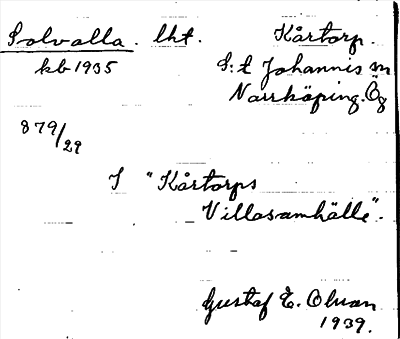 Solvalla. lht. Kårtorp.
kb 1935 S:t Johannis sn
Norrköping. Ög
879/29
I "Kårtorps
Villasamhälle".
Gustaf E. Olsson
1939.